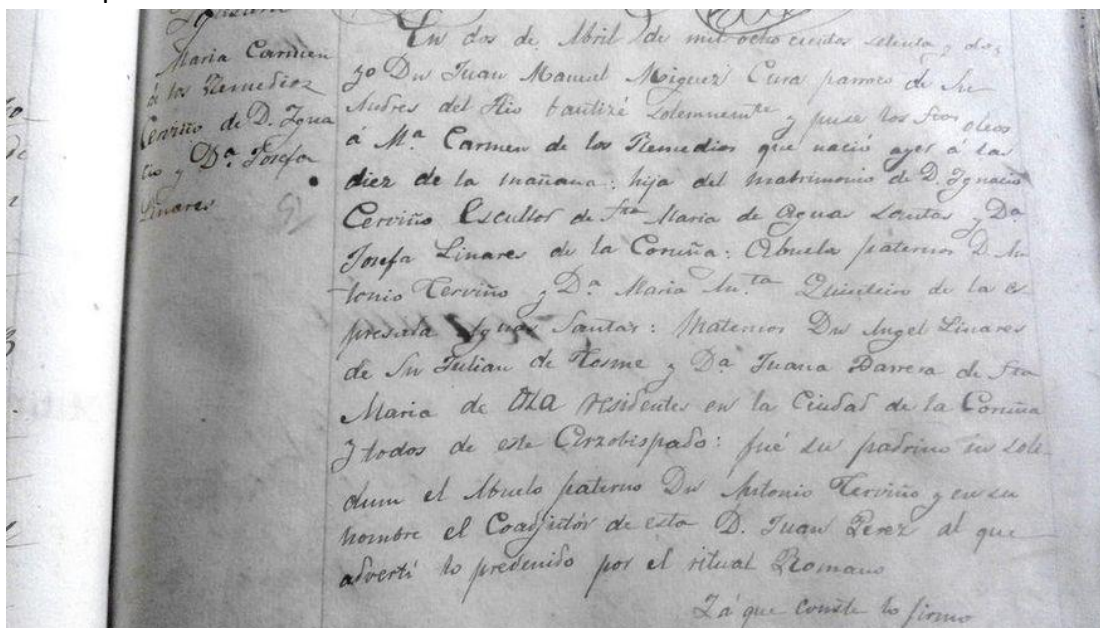 Maria Carmen
de los Remedios
Cerviño de D. Igna
cio y Dª. Josefa
Linares
En dos de Abril de mil ocho cientos setenta y dos
yo Dn Juan Manuel Miguez Cura parroco de Sn
Andres del Hio bautizé solemnemte y puse los Stos oleos
á Mª. Carmen de los Remedios que nació ayer á las
diez de la mañana: hija del matrimonio de D. Ignacio
Cerviño Escultor de Sta Maria de Aguas Santas y Dª
Josefa Linares de la Coruña: Abuelos paternos D. An
tonio Cerviño y Dª Maria Anta Quinteiro de la es
presada Aguas Santas: Maternos Dn Angel Linares
de Sn Julian de Cosme y Dª Juana Barrera de Sta
Maria de Oza residentes en la Ciudad de la Coruña
y todos de este Arzobispado: fué su padrino in soli
dum el Abuelo paterno Dn Antonio Cerviño y en su
nombre el Coadjutór de esta D. Juan Perez al que
advertí lo prevenido por el ritual Romano
Y á que conste lo firmo